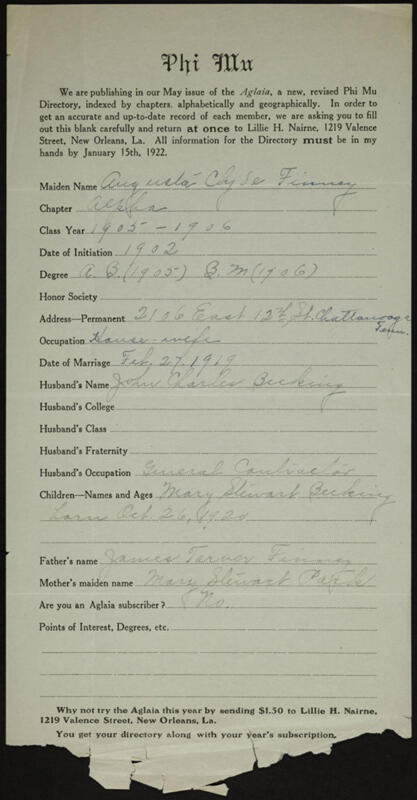 Phi Mu
We are publishing in our May issue of the Aglaia, a new, revised Phi Mu
Directory, indexed by chapters. alphabetically and geographically. In order to
get an accurate and up-to-date record of each member, we are asking you to fill
out this blank carefully and return at once to Lillie H. Nairne, 1219 Valence
Street, New Orleans, La. All information for the Directory must be in my
hands by January 15th, 1922.
Maiden Name Augusta Clyde Finney
Chapter Alpha
Class Year 1905 - 1906
Date of Initiation 1902
Degree A. B. (1905) B. M (1906)
Honor Society
Address—Permanent 2106 East 12th St. Chattanooga
Tenn.
Occupation House-wife
Date of Marriage Feb. 27, 1919
Husband's Name John Charles Becking
Husband's College
Husband's Class
Husband's Fraternity
Husband's Occupation General Contractor
Children—Names and Ages Mary Stewart Becking
born Oct 26, 1920
Father's name James Tarver Finney
Mother's maiden name Mary Stewart Park
Are you an Aglaia subscriber? No.
Points of Interest, Degrees, etc.
Why not try the Aglaia this year by sending $1.50 to Lillie H. Nairne,
1219 Valence Street, New Orleans, La.
You get your directory along with your year's subscription.